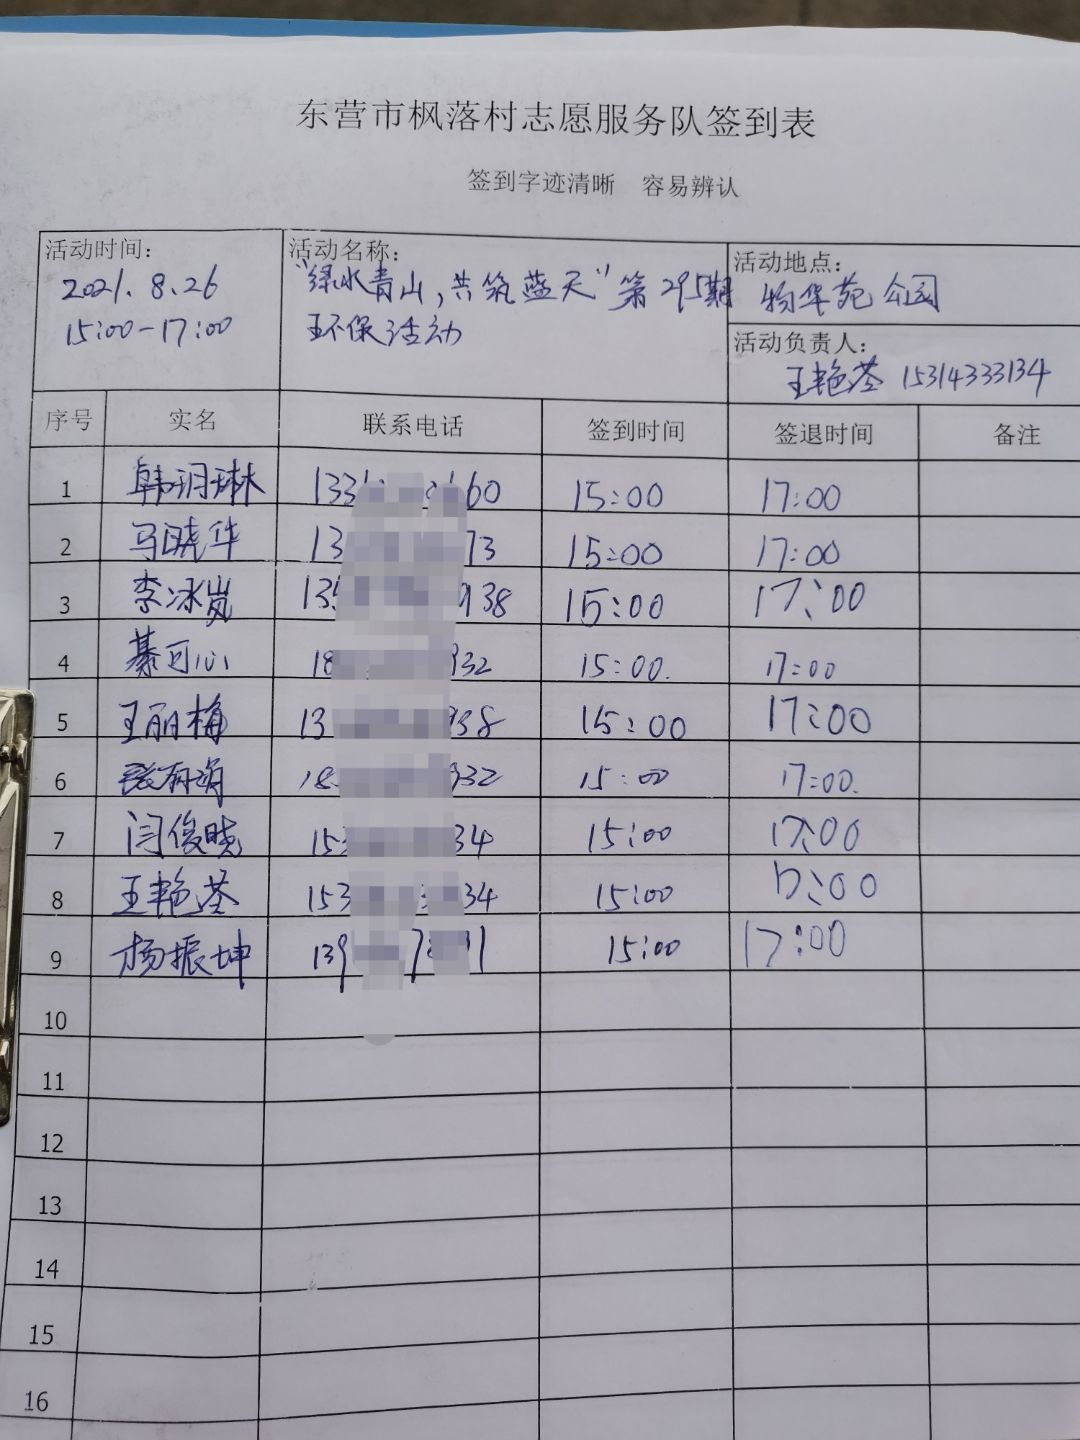 东营市枫落村志愿服务队签到表
签到字迹清晰 容易辨认
活动时间:
2021.8.26
15:00-17:00
活动名称:
"绿水青山,共筑蓝天"第295期
环保活动
活动地点:
物华苑公园
活动负责人:
王艳 15314333134
序号 实名 联系电话 签到时间 签退时间 备注
1 韩玥琳 133 60 15:00 17:00
2 马晓华 13 73 15:00 17:00
3 李冰岚 135 938 15:00 17:00
4 綦可心 18 932 15:00. 17:00
5 王丽梅 13 938 15:00 17:00
6 张 18 932 15:00 17:00.
7 闫俊晓 15 34 15:00 17:00
8 王艳 153 34 15:00 17:00
9 杨振坤 139 7 1 15:00 17:00
10
11
12
13
14
15
16